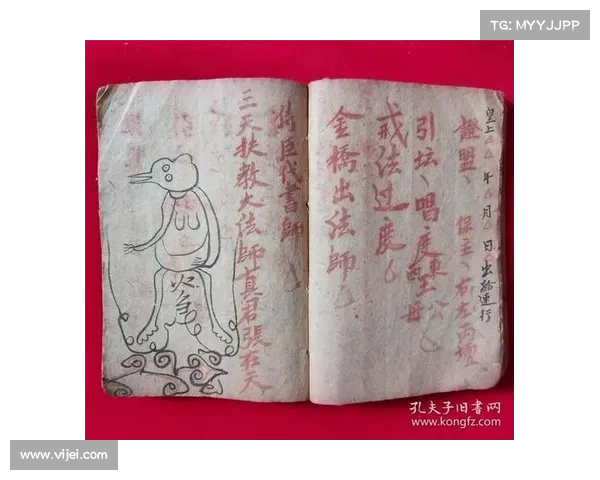 TG: MYYJJPP
皇上 年 月 日出給連行
證盟、保主、右左兩壇
引坛、唱度、東 公
西 母
戒法过度
金橋出法師
臣代書師
三天扶教大法師真君張在天
孔夫子旧書网
www.kongfz.com
www.vijei.com